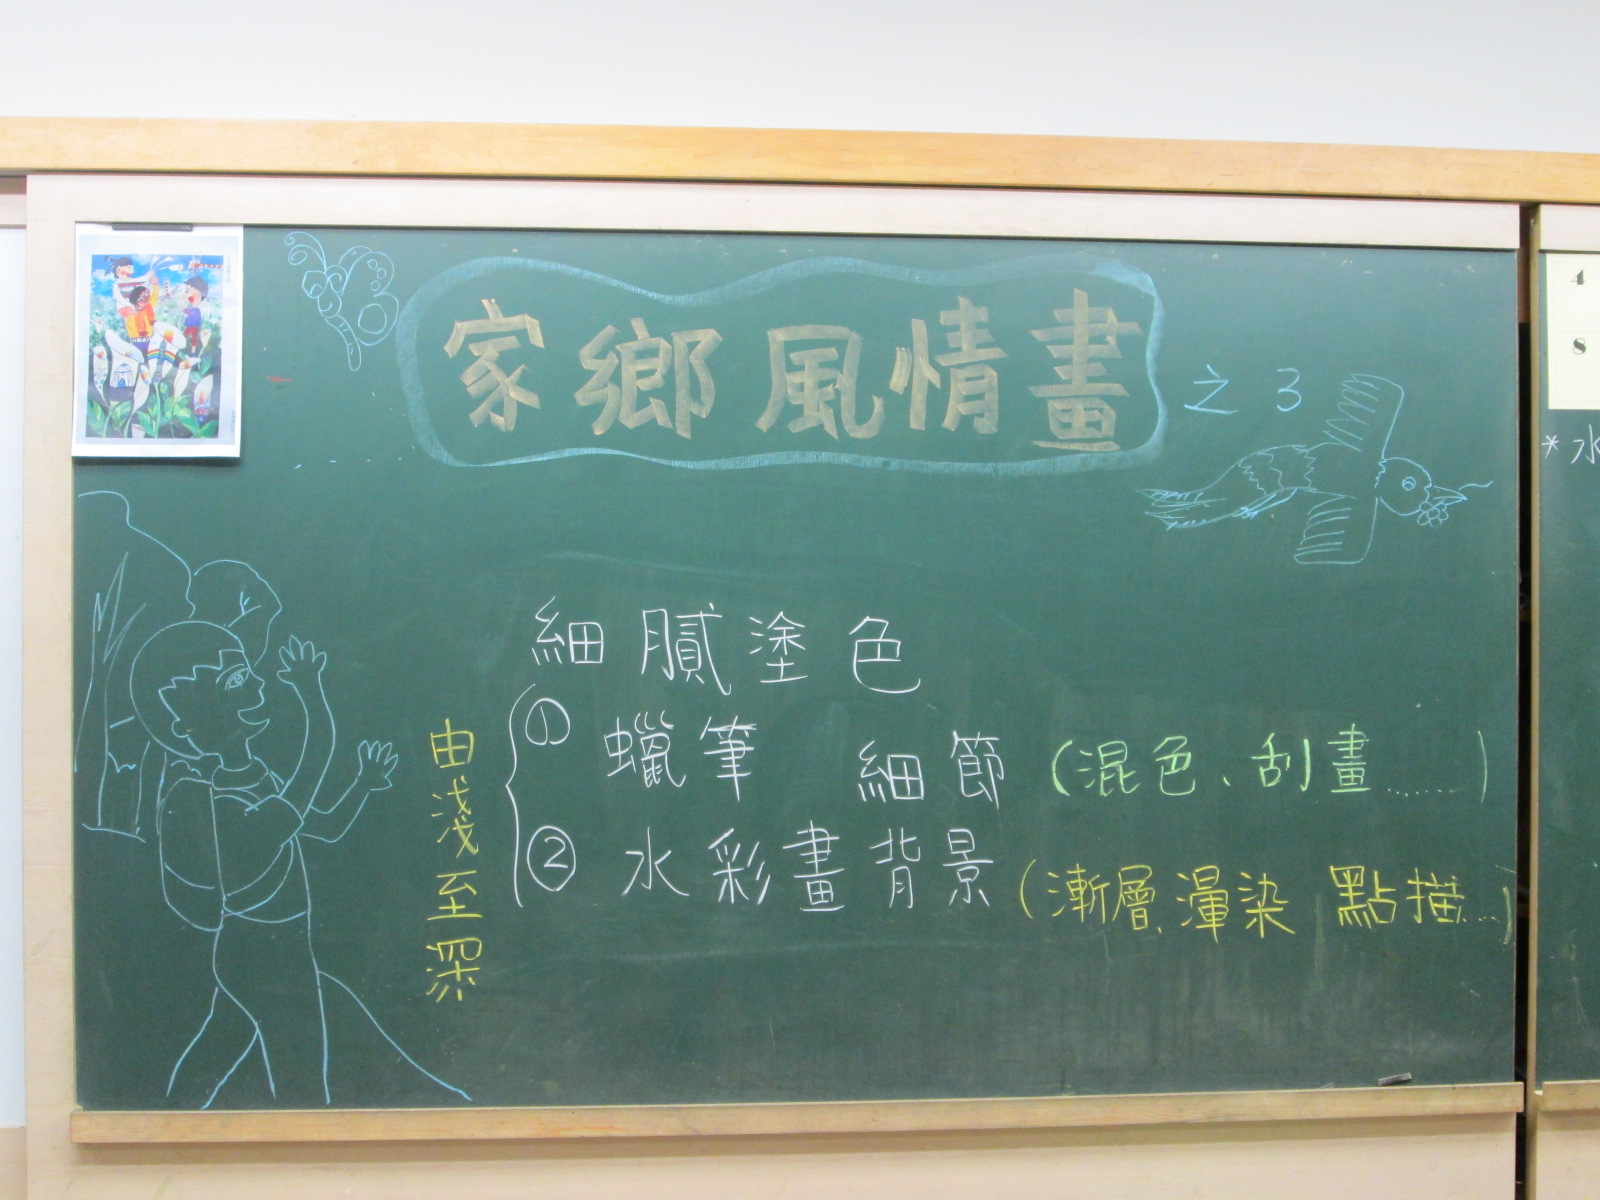 家鄉風情畫之3
細膩塗色
由淺至深
① 蠟筆 細節 (混色、刮畫......)
② 水彩畫背景 (漸層、渾染 點描...)
4
8
*水